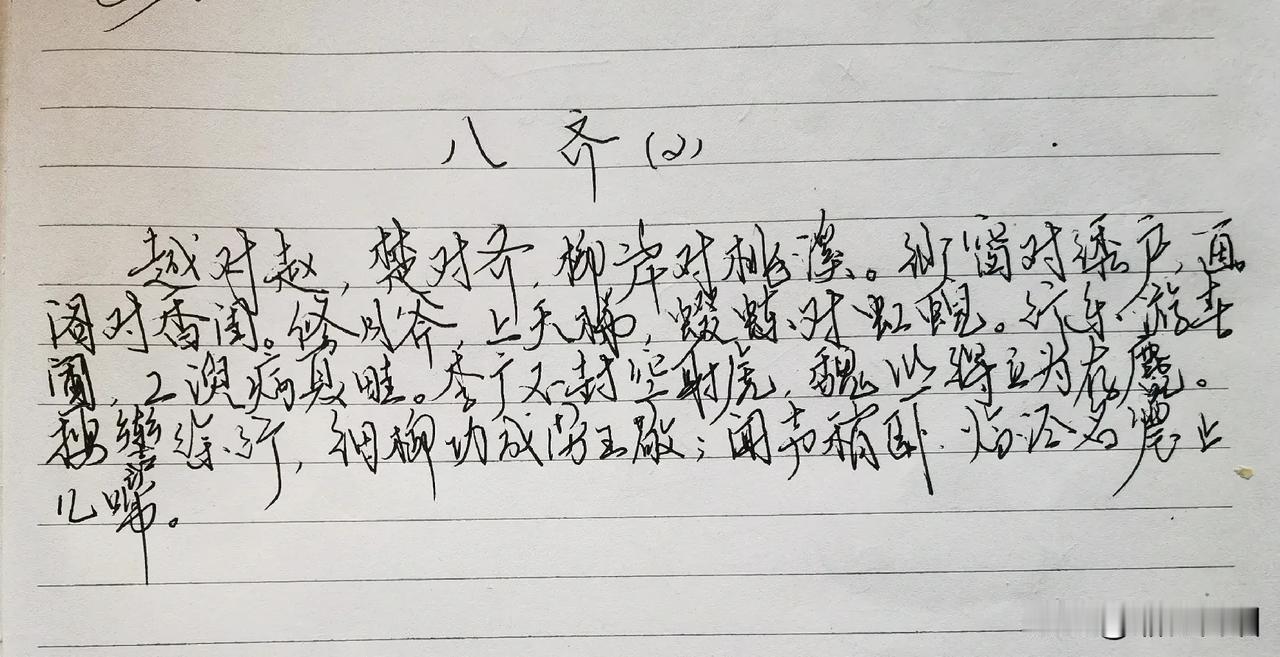 八齐(2)
越对赵,楚对齐,柳岸对桃溪。纱窗对绣户,画
阁对香闺。修月斧,上天梯,螮蝀对虹霓。行乐游春
圃,工谀病夏畦。李广不封空射虎,魏明得立为存麑。
按辔徐行,细柳功成劳王敬;闻声稍卧,临泾名震止
儿啼。